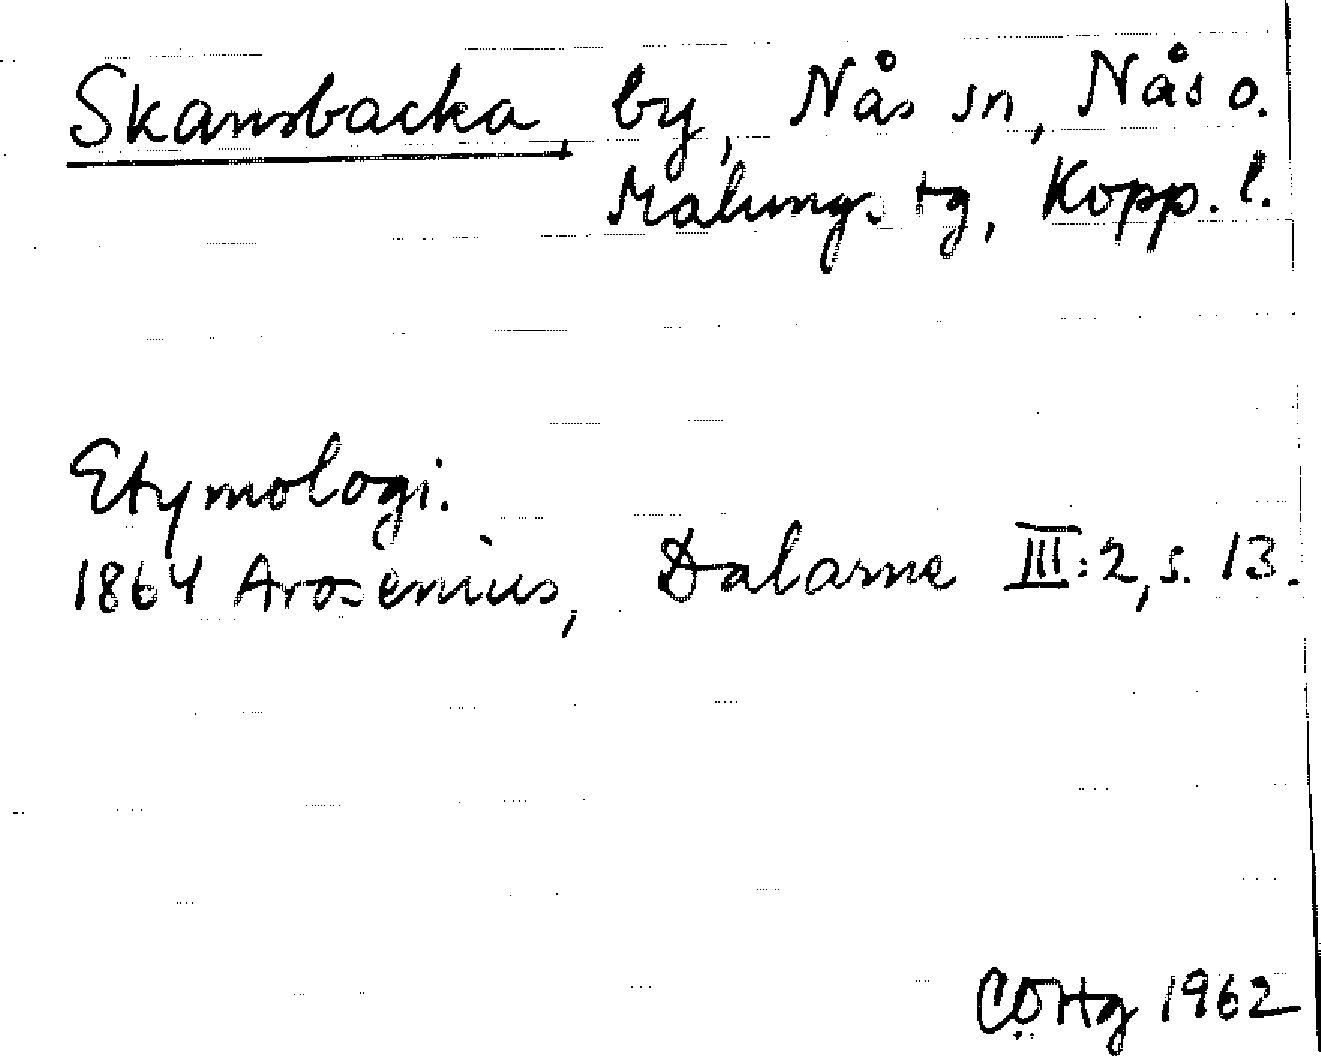 Skansbacka, by, Nås sn, Nås o.
Malungs tg, Kopp. l.
Etymologi.
1864 Arosenius, Dalarne III:2, s. 13.
1962